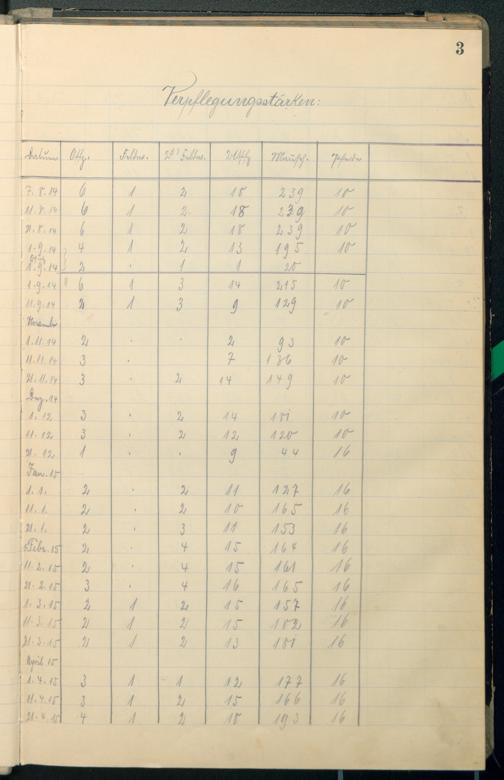 3
Verpflegungsstärken:
Datum Offz. Feldw. Uffz. Mannsch. Pferde
7.8.14 6 1 2 18 239 10
11.8.14 6 1 2 18 239 10
21.8.14 6 1 2 18 239 10
1.9.14 4 1 2 13 195 10
1.9.14 2 . 1 1 20
1.9.14 6 1 3 14 215 10
11.9.14 2 1 3 9 129 10
November
1.11.14 2 . . 2 93 10
11.11.14 3 . 7 136 10
21.11.14 3 . 2 14 149 10
Dez. 14
1.12 3 . 2 14 101 10
11.12 3 . 2 12 120 10
21.12 1 . . 9 44 16
Jan. 15
1.1. 2 . 2 11 127 16
11.1. 2 . 2 10 165 16
21.1. 2 . 3 11 153 16
Febr. 15 2 . 4 15 164 16
11.2.15 2 . 4 15 161 16
21.2.15 3 . 4 16 165 16
1.3.15 2 1 2 15 157 16
11.3.15 2 1 2 15 182 16
21.3.15 2 1 2 13 181 16
April 15
1.4.15 3 1 1 12 177 16
11.4.15 3 1 2 15 166 16
21.4.15 4 1 2 18 193 16